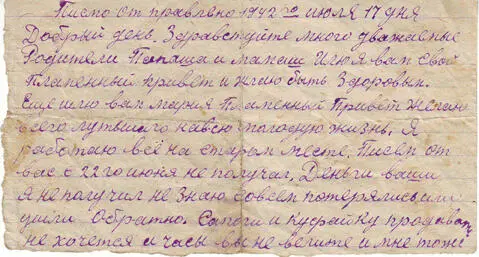 Писмо от правлено 1942 го июля 17 дня
Добрый день. Здравствуйте много уважаемые
Родители Папаша и мамаш И шлю я вам свой
Пламенный привет и желаю быть Здоровым.
Ещё шлю вам Мария Пламенный Привет Желаю
всего лутьшаго на всю молодую жизнь. Я
работаю всё на старом месте. Писем от
вас с 22 го июня не получал. Деньги ваши
я не получил не Знаю совсем потерялись или
ушли Обратно. Сапоги и куфайку продавать
не хочется и часы вы не велите и мне тоже